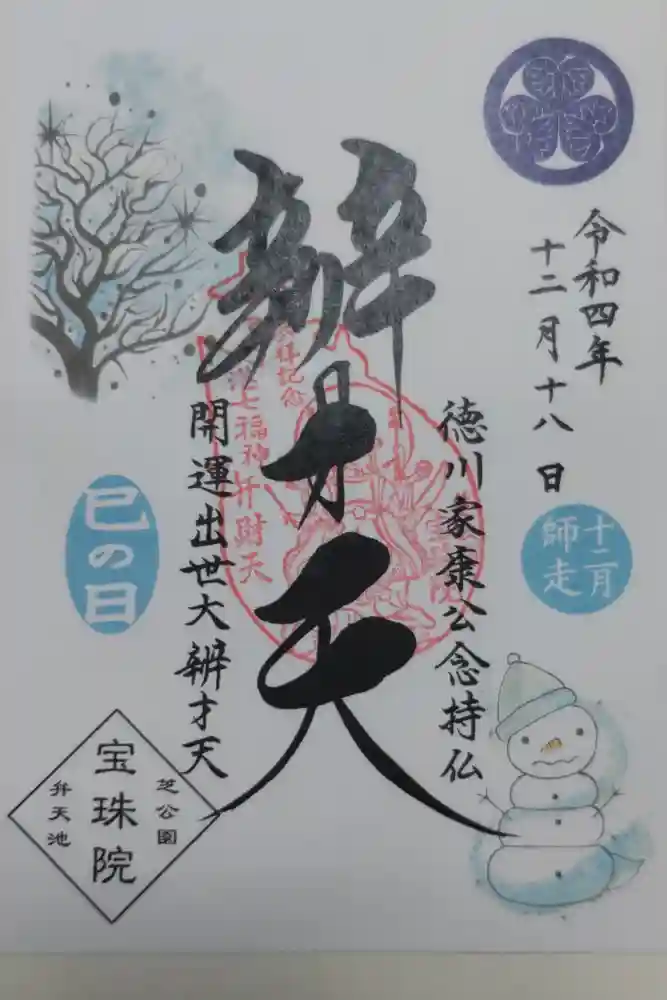 令和四年
十二月十八日
十二月
師走
徳川家康公念持仏
辨才天
参拝記念
港七福神弁財天
開運出世大辨才天
巳の日
芝公園
宝珠院
弁天池